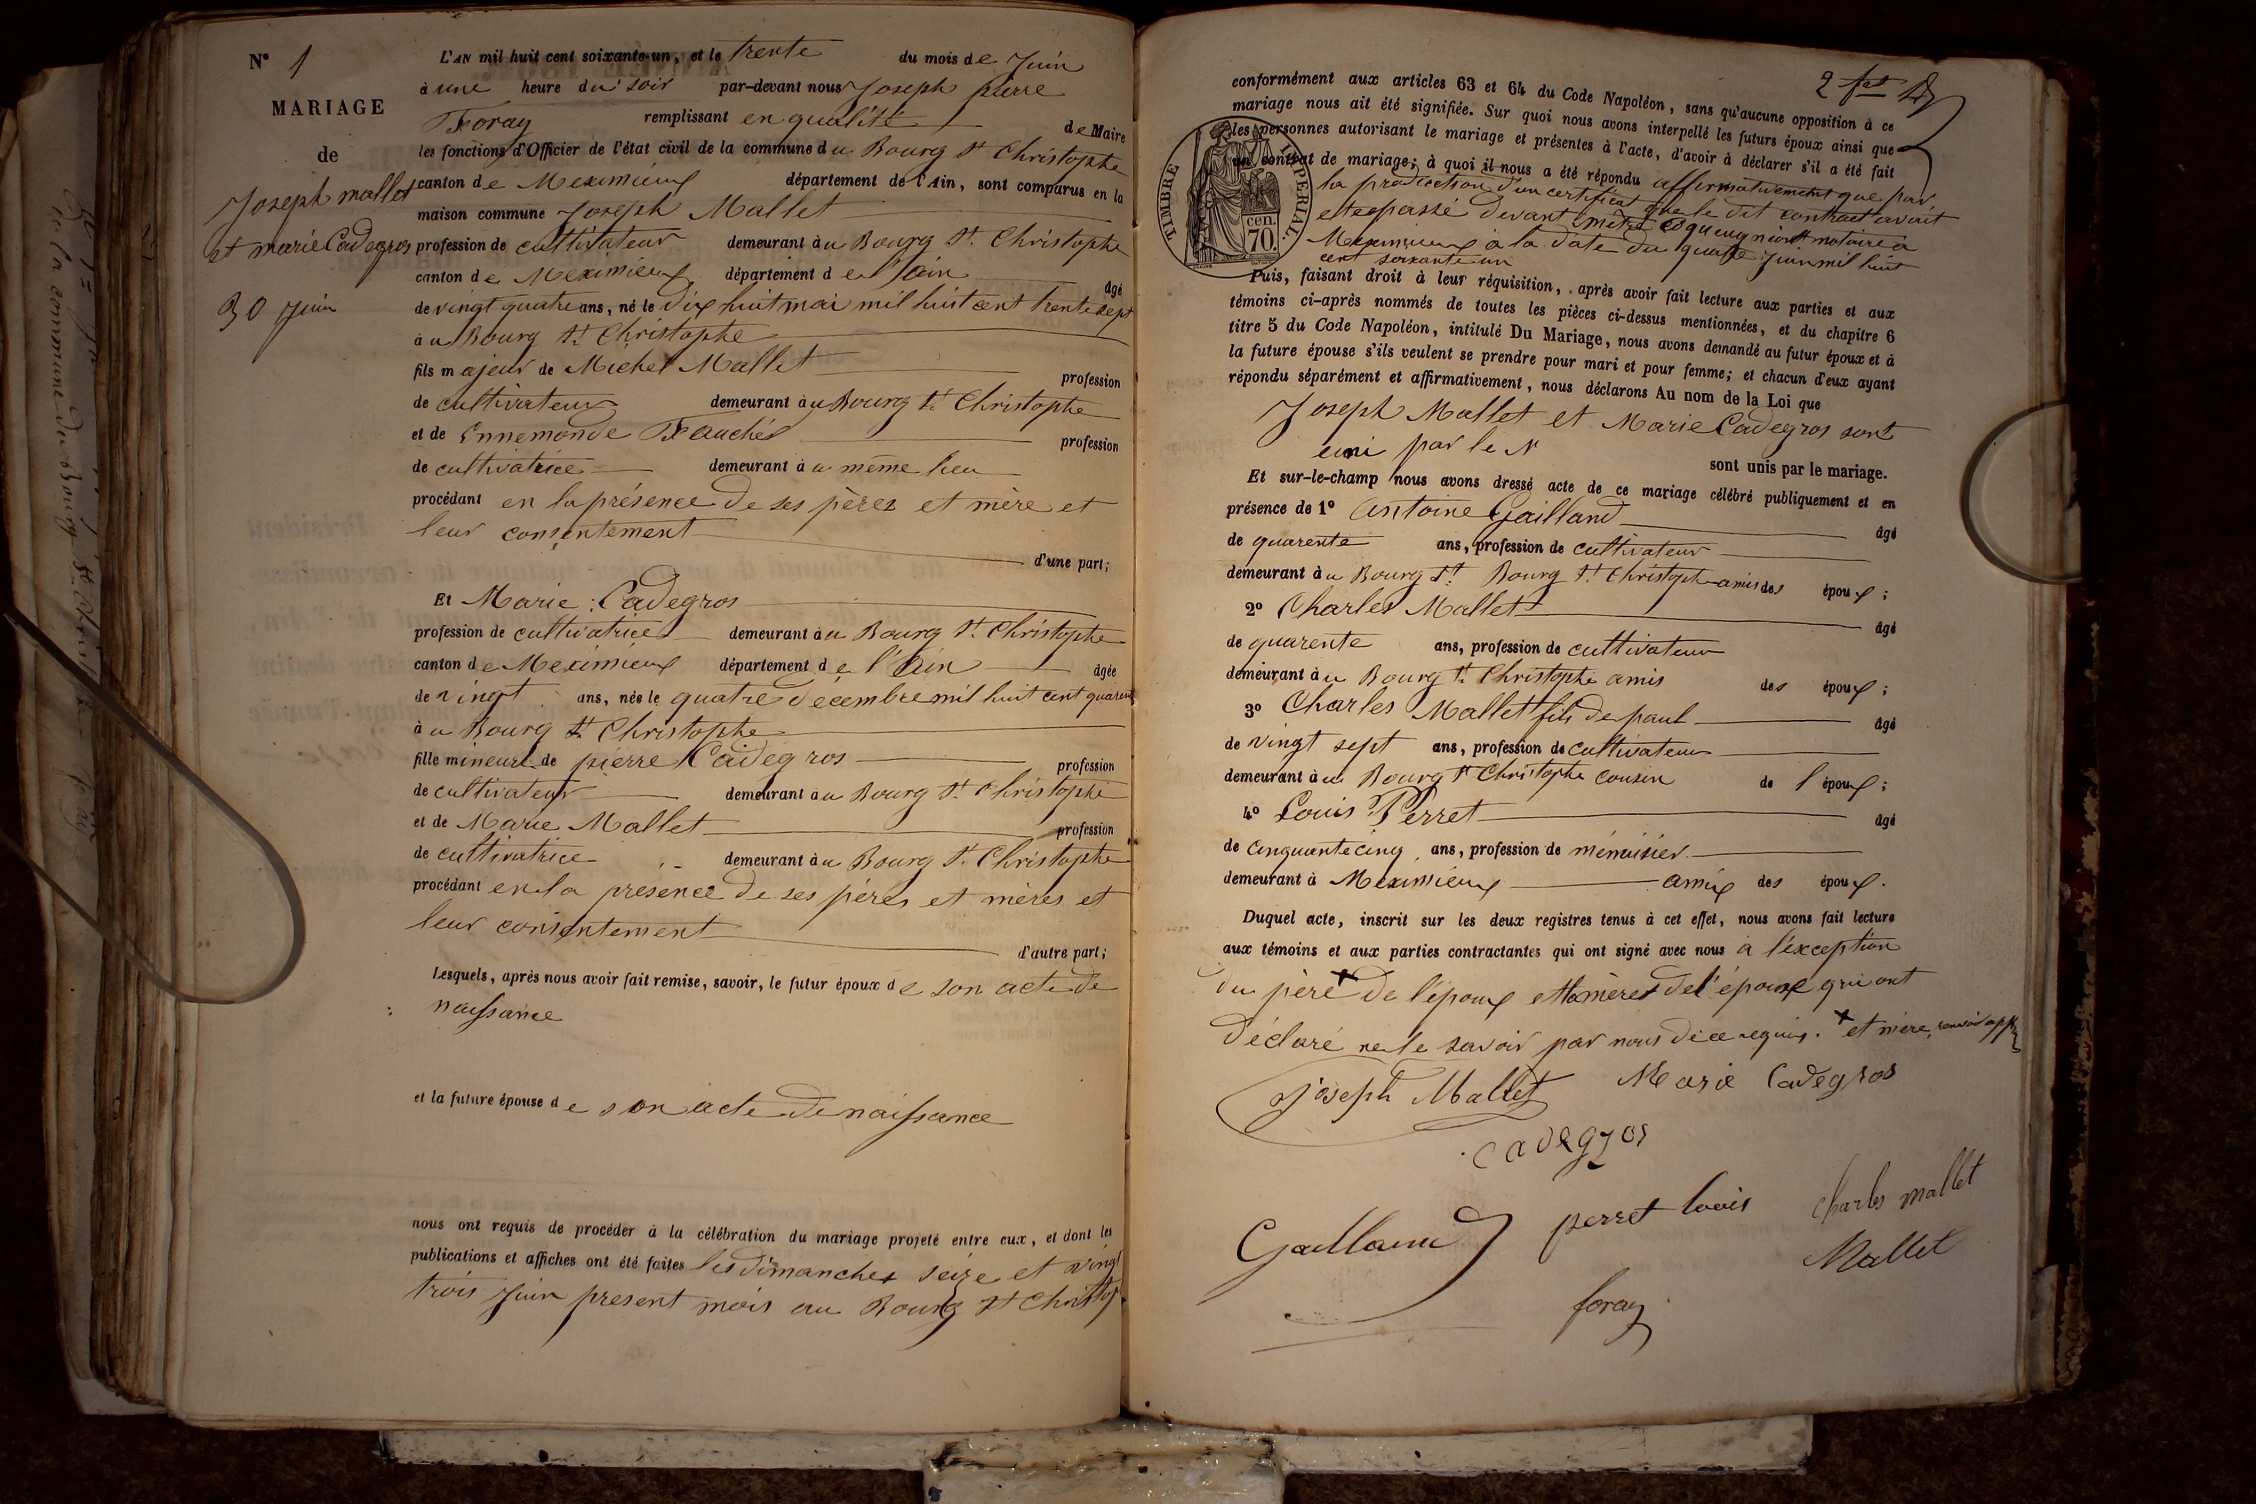 N° 1
MARIAGE
de
Joseph mallet
et marie Cadegros
30 Juin
L'AN mil huit cent soixante-un, et le trente du mois de Juin
à une heure du soir par-devant nous Joseph pierre
Foray remplissant en qualité de Maire
les fonctions d'Officier de l'état civil de la commune du Bourg St Christophe
canton de Meximieux département de l'Ain, sont comparus en la
maison commune Joseph Mallet
profession de cultivateur demeurant au Bourg St. Christophe
canton de Meximieux département de l'ain âgé
de vingt quatre ans, né le dix huit mai mil huit cent trente sept
au Bourg St. Christophe
fils majeur de Michel Mallet profession
de cultivateur demeurant au Bourg St. Christophe
et de Ennemonde Fauchés profession
de cultivatrice demeurant au même lieu
procédant en la présence de ses pères et mère et
leur consentement
d'une part;
Et Marie Cadegros
profession de cultivatrice demeurant au Bourg St. Christophe
canton de Meximieux département de l'ain âgée
de vingt ans, née le quatre décembre mil huit cent quarente
au Bourg St. Christophe
fille mineure de pierre Cadegros profession
de cultivateur demeurant au Bourg St. Christophe
et de Marie Mallet profession
de cultivatrice demeurant au Bourg St. Christophe
procédant en la présence de ses pères et mères et
leur consentement
d'autre part;
Lesquels, après nous avoir fait remise, savoir, le futur époux de son acte de
naissance
et la future épouse de son acte de naissance
nous ont requis de procéder à la célébration du mariage projeté entre eux, et dont les
publications et affiches ont été faites les dimanches seize et vingt
trois Juin present mois au Bourg St Christop.
conformément aux articles 63 et 64 du Code Napoléon, sans qu'aucune opposition à ce
mariage nous ait été signifiée. Sur quoi nous avons interpellé les futurs époux ainsi que
les personnes autorisant le mariage et présentes à l'acte, d'avoir à déclarer s'il a été fait
un contrat de mariage; à quoi il nous a été répondu affirmativement que par
la production d'un certificat que le dit contract avait
ete passé devant mètre notaire à
Meximieux à la date du quatre Juin mil huit
cent soixante un
TIMBRE IMPERIAL
70. cen
Puis, faisant droit à leur réquisition, après avoir fait lecture aux parties et aux
témoins ci-après nommés de toutes les pièces ci-dessus mentionnées, et du chapitre 6
titre 5 du Code Napoléon, intitulé Du Mariage, nous avons demandé au futur époux et à
la future épouse s'ils veulent se prendre pour mari et pour femme; et chacun d'eux ayant
répondu séparément et affirmativement, nous déclarons Au nom de la Loi que
Joseph Mallet et Marie Cadegros sont
uni par le
sont unis par le mariage.
Et sur-le-champ nous avons dressé acte de ce mariage célébré publiquement et en
présence de 1° Antoine Gailland âgé
de quarente ans, profession de cultivateur
demeurant au Bourg St. Bourg St. Christophe amis des époux;
2° Charles Mallet âgé
de quarente ans, profession de cultivateur
demeurant au Bourg St. Christophe amis des époux;
3° Charles Mallet fils de paul âgé
de vingt sept ans, profession de cultivateur
demeurant au Bourg St Christophe cousin de l'époux;
4° Louis Perret âgé
de cinquante cinq ans, profession de ménuisier
demeurant à Meximieux amix des époux.
Duquel acte, inscrit sur les deux registres tenus à cet effet, nous avons fait lecture
aux témoins et aux parties contractantes qui ont signé avec nous à l'éxception
du père de l'époux et la mère de l'épouse qui ont
déclaré ne le savoir par nous de ce requis. et mère
Joseph Mallet Marie Cadegros
cadegros
Gailland perret louis Charles mallet
Mallet
foray